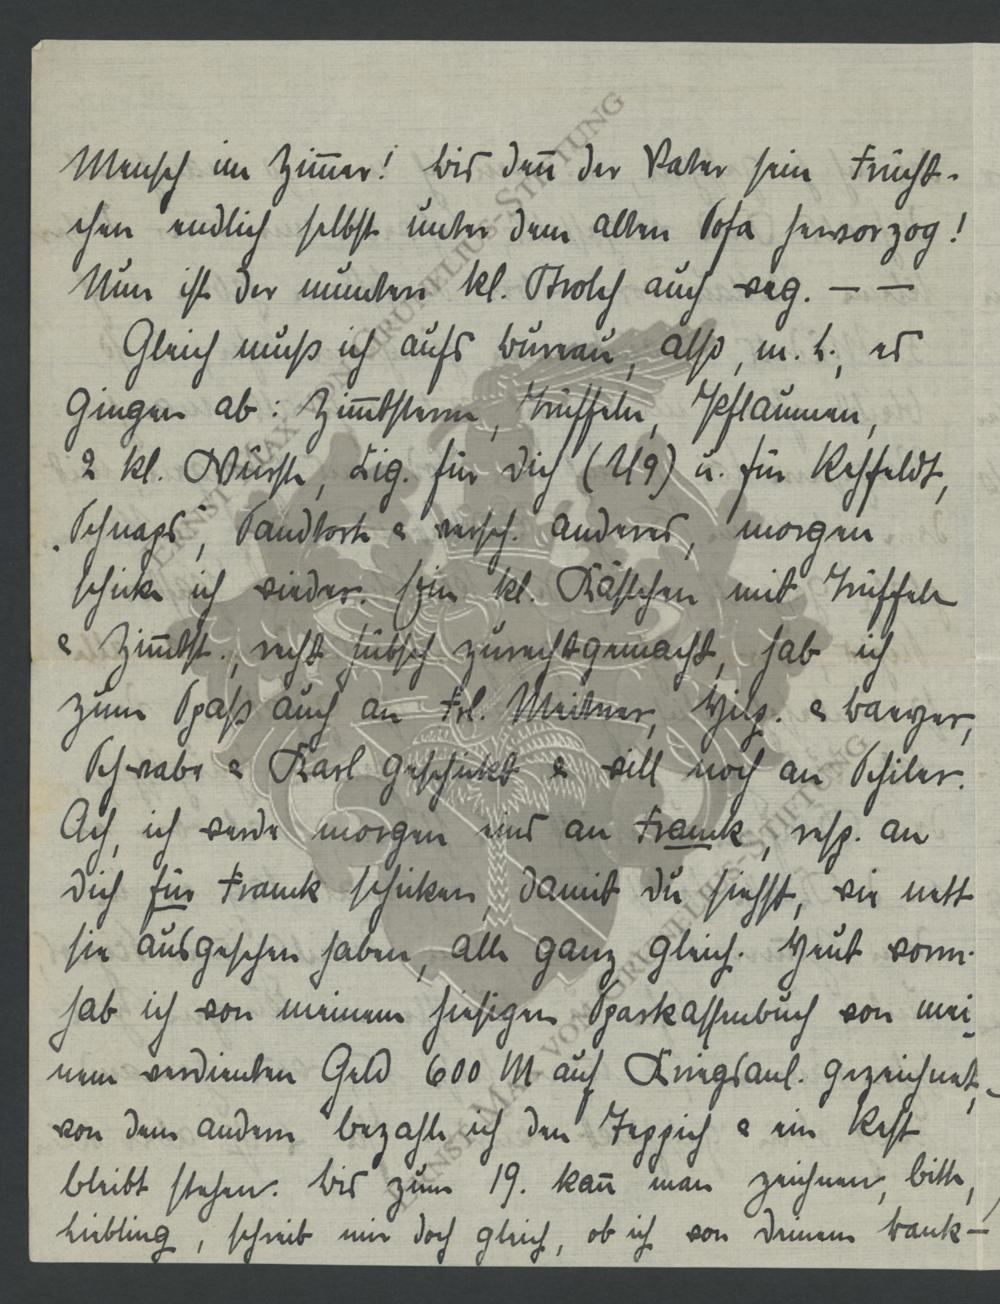 Mensch im Zim̅er! bis den̅ der Vater sein Frücht-
chen endlich selbst unter dem alten Sofa hervorzog!
Nun ist der muntere kl. Strolch auch weg. — —
Gleich muß ich aufs bureau, also, m. L., es
gingen ab: Zim̅tsterne, Trüffeln, Pflaumen,
2 kl. Würste, Zig. für dich (U9) u. für Rehfeldt,
„Schnaps“, Sandtorte & versch. anderes, morgen
schicke ich wieder. Ein kl. Kästchen mit Trüffeln
& Zim̅tst., recht hübsch zurechtgemacht, hab ich
zum Spaß auch an Frl. Meitner, Herz. & baeyer,
Schwabe & Karl geschickt & will noch an Schiler.
Ach, ich werde morgen eins an Franck, resp. an
dich für Franck schicken, damit du siehst, wie nett
sie ausgesehen haben, alle ganz gleich. Heut vorm.
hab ich von meinem hiesigen Sparkassenbuch von mei-
nem verdienten Geld 600 M auf Kriegsanl. gezeichnet,
von dem andern bezahle ich den Teppich & ein Rest
bleibt stehen. bis zum 19. kan̅ man zeichnen, bitte,
Liebling, schreib mir doch gleich, ob ich von deinem bank-
ERNST-MAX VON GRUNELIUS-STIFTUNG
ERNST-MAX VON GRUNELIUS-STIFTUNG